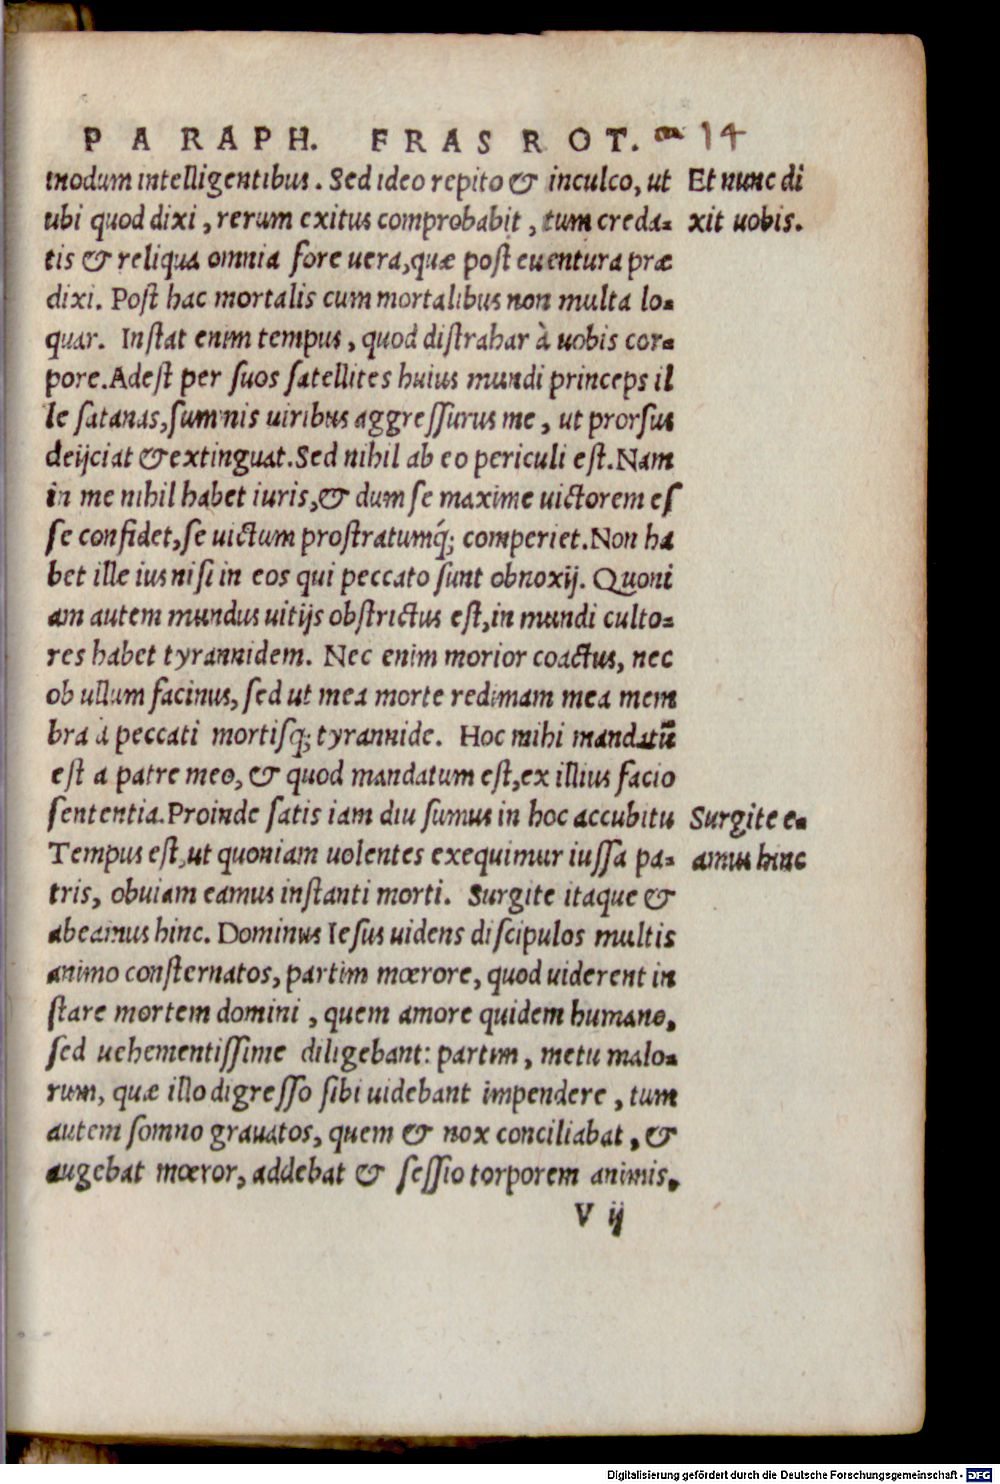 PARAPH. ERAS ROT. 14
modum intelligentibus. Sed ideo repito & inculco, ut
Et nunc di
ubi quod dixi, rerum exitus comprobabit, tum creda-
xit uobis.
tis & reliqua omnia fore uera, quæ post euentura præ
dixi. Post hac mortalis cum mortalibus non multa lo-
quar. Instat enim tempus, quod distrahar à uobis cor-
pore. Adest per suos satellites huius mundi princeps il
le satanas, summis uiribus aggressurus me, ut prorsus
deijciat & extinguat. Sed nihil ab eo periculi est. Nam
in me nihil habet iuris, & dum se maxime uictorem es
se confidet, se uictum prostratumq́; comperiet. Non ha
bet ille ius nisi in eos qui peccato sunt obnoxij. Quoni
am autem mundus uitijs obstrictus est, in mundi culto-
res habet tyrannidem. Nec enim morior coactus, nec
ob ullum facinus, sed ut mea morte redimam mea mem
bra à peccati mortisq; tyrannide. Hoc mihi mandatũ
est a patre meo, & quod mandatum est, ex illius facio
sententia. Proinde satis iam diu sumus in hoc accubitu
Surgite e-
Tempus est, ut quoniam uolentes exequimur iussa pa-
amus hinc
tris, obuiam eamus instanti morti. Surgite itaque &
abeamus hinc. Dominus Iesus uidens discipulos multis
animo consternatos, partim mœrore, quod uiderent in
stare mortem domini, quem amore quidem humano,
sed uehementissime diligebant: partim, metu malo-
rum, quæ illo digresso sibi uidebant impendere, tum
autem somno grauatos, quem & nox conciliabat, &
augebat mœror, addebat & sessio torporem animis,
V ij
Digitalisierung gefördert durch die Deutsche Forschungsgemeinschaft - DFG